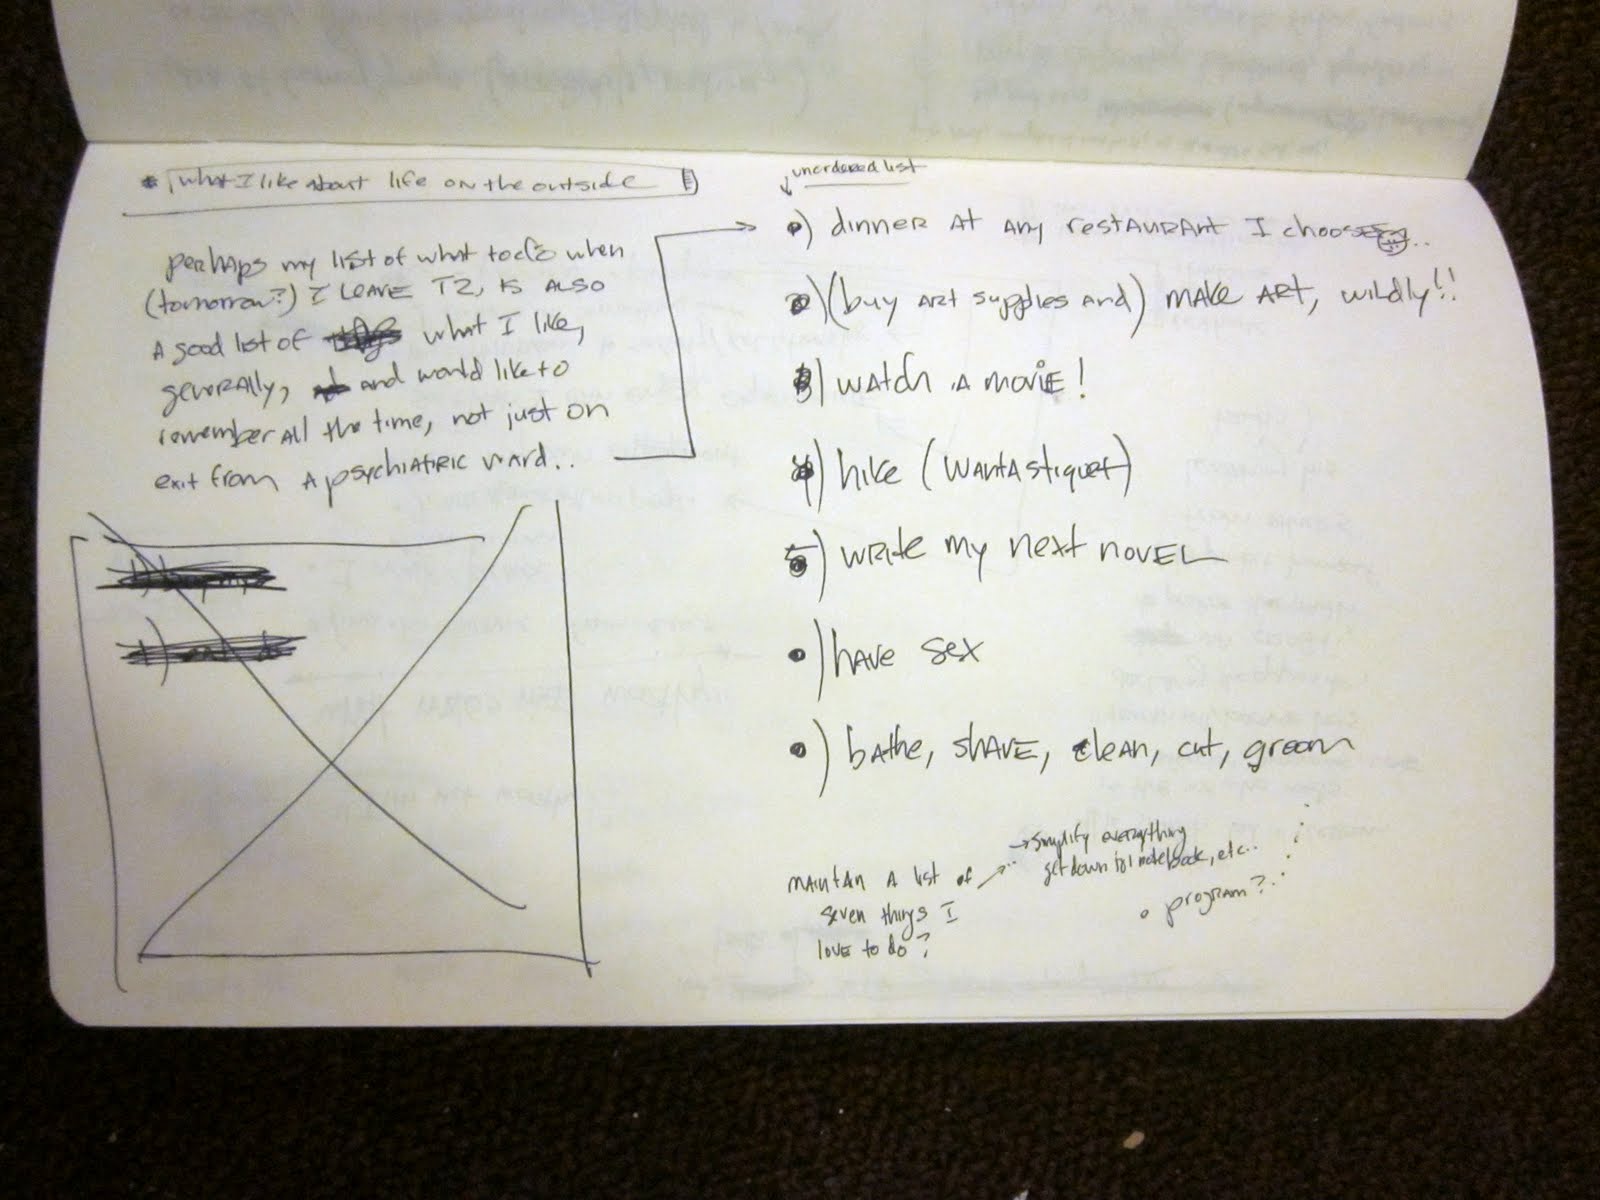 * what I like about life on the outside
perhaps my list of what to do when
(tomorrow?) I leave T2, is also
a good list of what I like,
generally, and would like to
remember all the time, not just on
exit from a psychiatric ward..
unordered list
•) dinner at any restaurant I choose..
2)(buy art supplies and) make art, wildly!!
3) watch a movie!
4) hike (Wantastiquet)
5) write my next novel
•) have sex
•) bathe, shave, clean, cut, groom
maintain a list of
seven things I
love to do?
→ simplify everything
get down to 1 notebook, etc..
o program?..